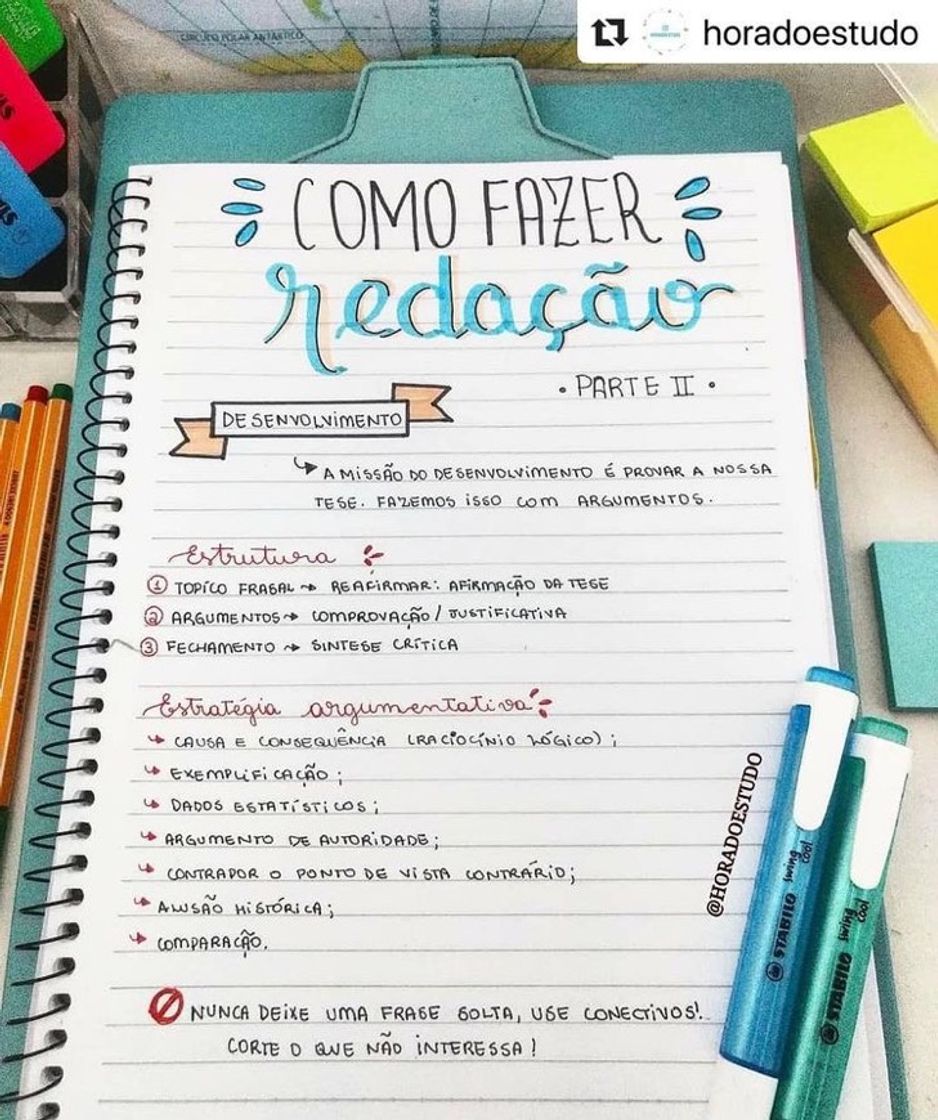 horadoestudo
CÍRCULO POLAR ANTÁRTICO
COMO FAZER
redação
• PARTE II •
DESENVOLVIMENTO
A MISSÃO DO DESENVOLVIMENTO É PROVAR A NOSSA
TESE. FAZEMOS ISSO COM ARGUMENTOS.
Estrutura
1 TOPÍCO FRASAL → REAFIRMAR: AFIRMAÇÃO DA TESE
2 ARGUMENTOS → COMPROVAÇÃO / JUSTIFICATIVA
3 FECHAMENTO → SINTESE CRÍTICA
Estratégia argumentativa
↳ CAUSA E CONSEQUÊNCIA (RACIOCÍNIO LÓGICO);
↳ EXEMPLIFICAÇÃO;
↳ DADOS ESTATÍSTICOS;
↳ ARGUMENTO DE AUTORIDADE;
↳ CONTRAPOR O PONTO DE VISTA CONTRÁRIO;
↳ ALUSÃO HISTÓRICA;
↳ COMPARAÇÃO.
NUNCA DEIXE UMA FRASE SOLTA, USE CONECTIVOS!
CORTE O QUE NÃO INTERESSA!
@HORADOESTUDO
STABILO swing cool
STABILO swing cool